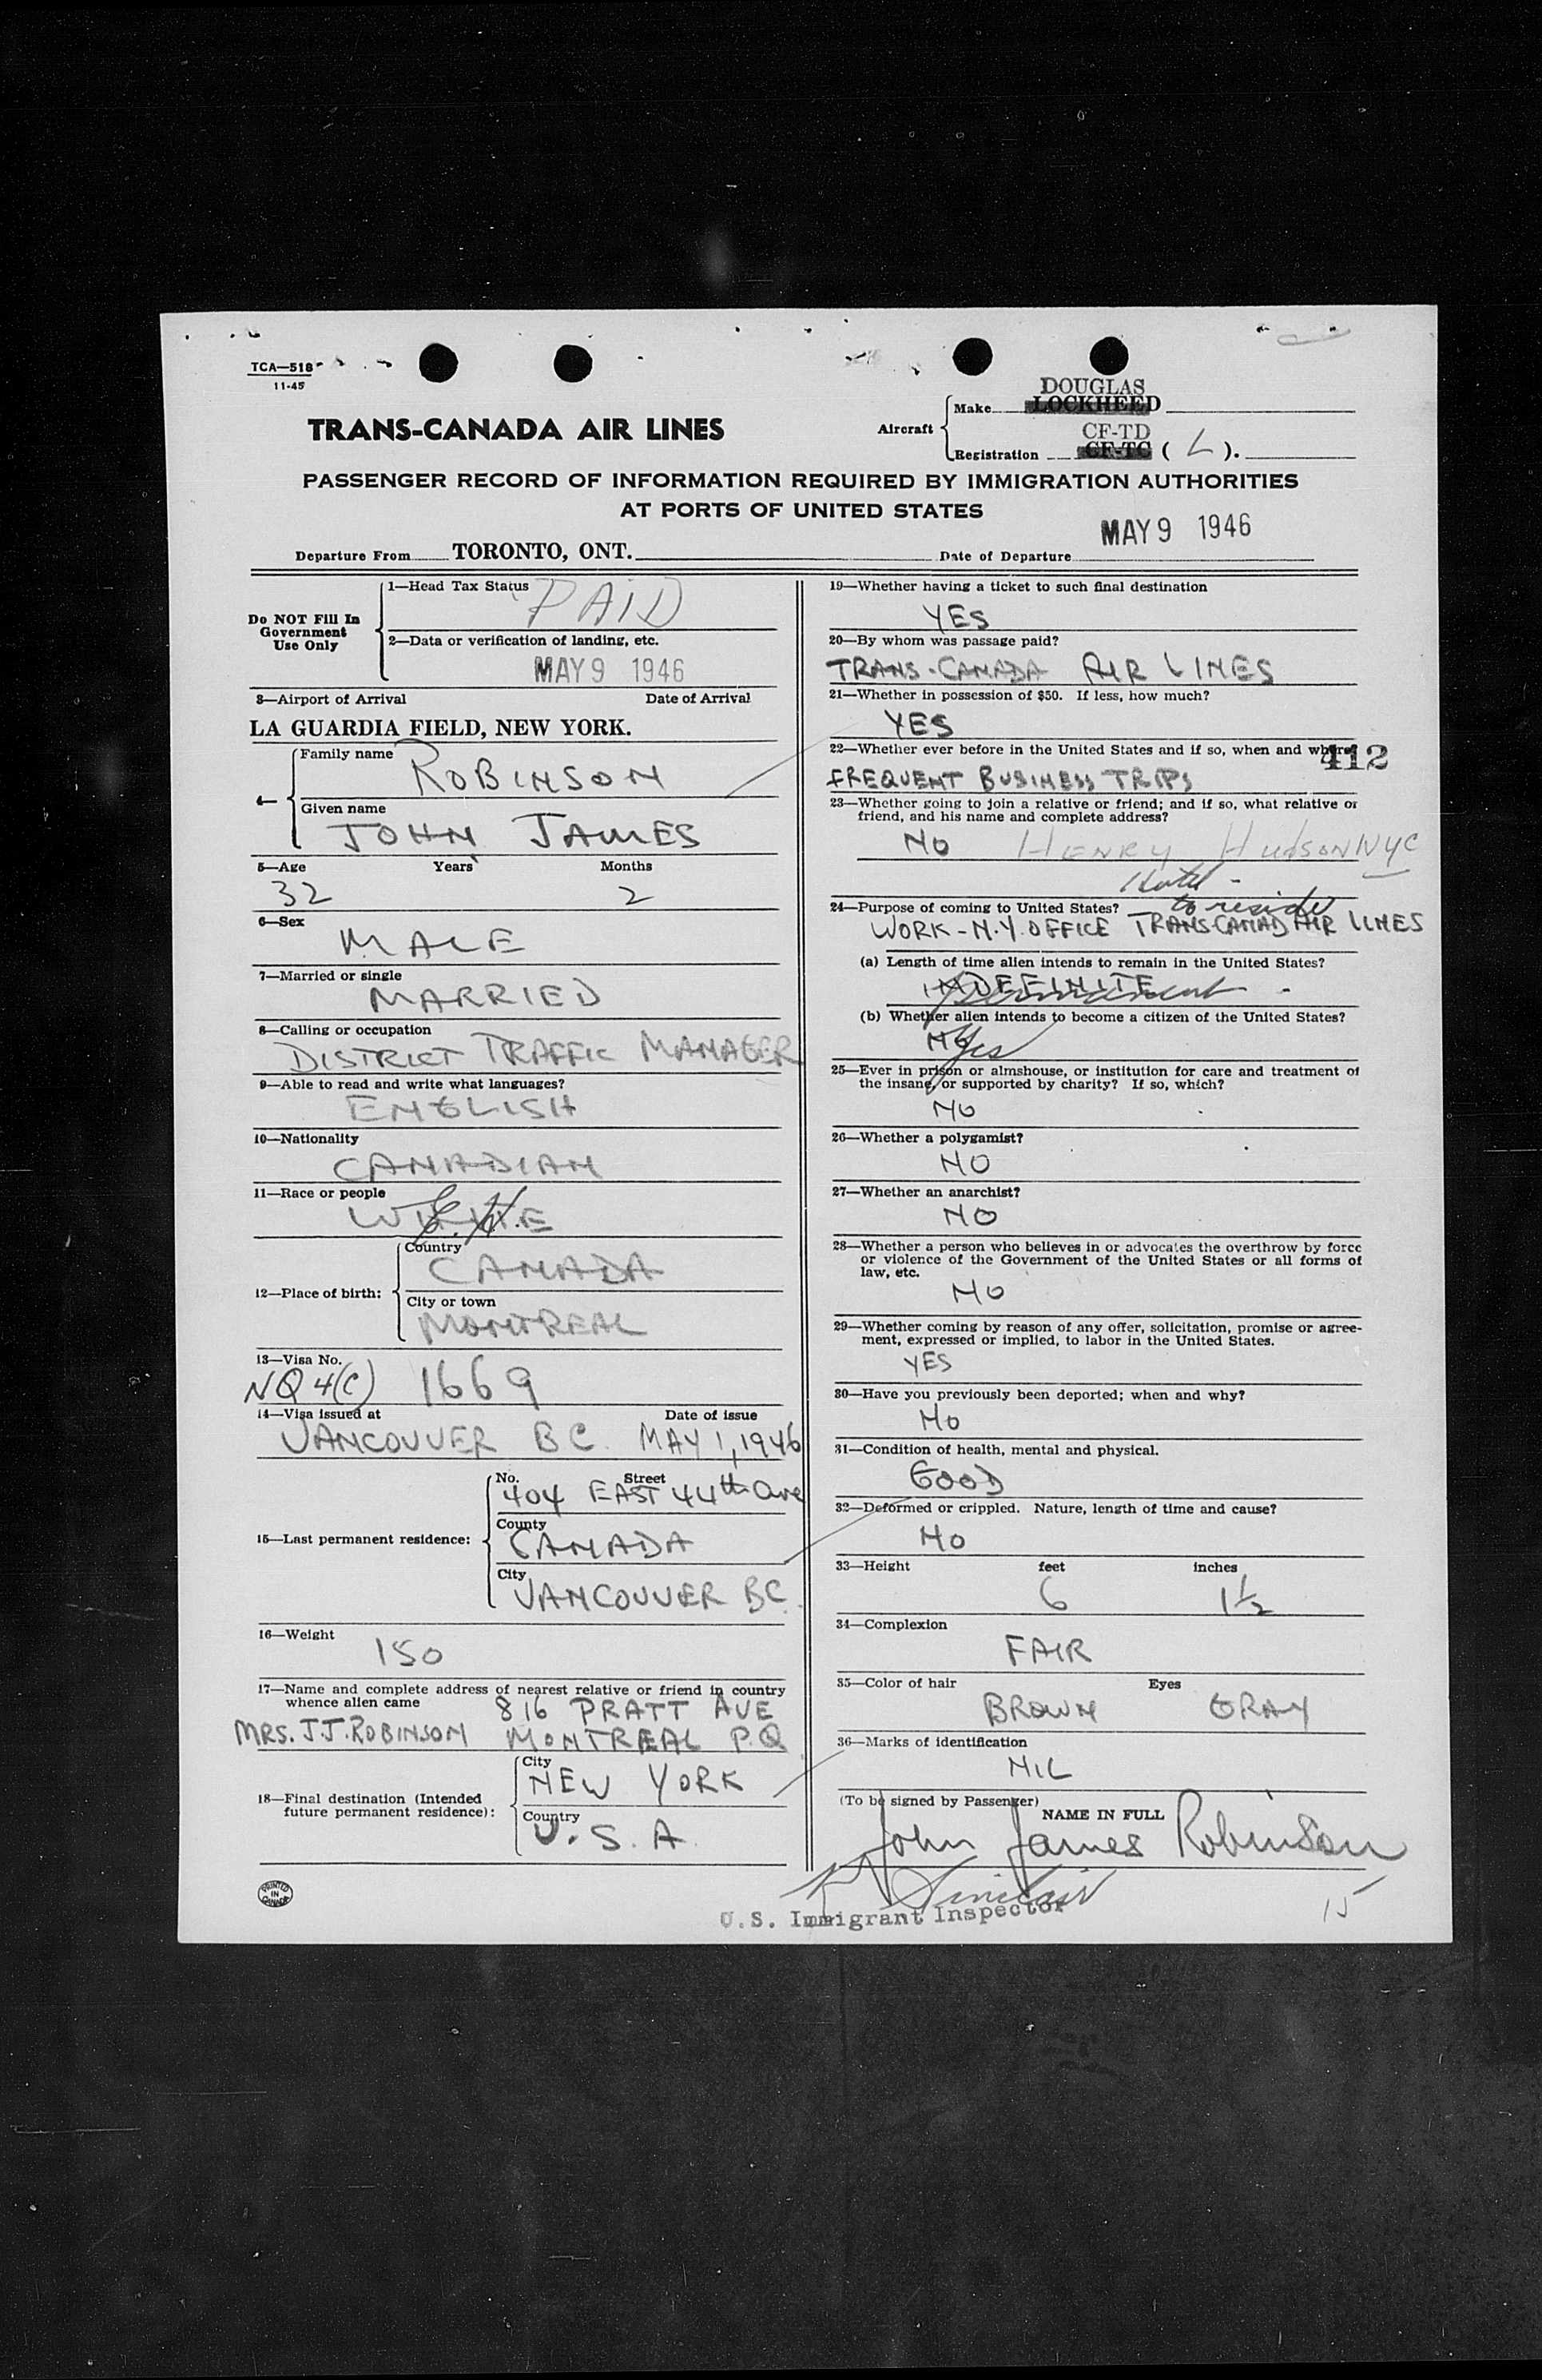 TCA—518
11-45
DOUGLAS
Make LOCKHEED
TRANS-CANADA AIR LINES
Aircraft
CF-TD
Registration CF-TC ( L ).
PASSENGER RECORD OF INFORMATION REQUIRED BY IMMIGRATION AUTHORITIES
AT PORTS OF UNITED STATES
MAY 9 1946
Departure From TORONTO, ONT. Date of Departure
Do NOT Fill In
Government
Use Only
1—Head Tax Status PAID
2—Data or verification of landing, etc.
MAY 9 1946
3—Airport of Arrival Date of Arrival
LA GUARDIA FIELD, NEW YORK.
4—
Family name ROBINSON
Given name
JOHN JAMES
5—Age Years Months
32 2
6—Sex
MALE
7—Married or single
MARRIED
8—Calling or occupation
DISTRICT TRAFFIC MANAGER
9—Able to read and write what languages?
ENGLISH
10—Nationality
CANADIAN
11—Race or people
WHITE
12—Place of birth:
Country
CANADA
City or town
MONTREAL
13—Visa No.
NQ 4(C) 1669
14—Visa issued at Date of issue
VANCOUVER BC. MAY 1, 1946
15—Last permanent residence:
No. Street
404 EAST 44th Ave
County
CANADA
City
VANCOUVER BC.
16—Weight
150
17—Name and complete address of nearest relative or friend in country
whence alien came 816 PRATT AVE
MRS. J.J. ROBINSON MONTREAL P.Q
18—Final destination (Intended
future permanent residence):
City
NEW YORK
Country
U.S.A.
PRINTED
IN
CANADA
19—Whether having a ticket to such final destination
YES
20—By whom was passage paid?
TRANS-CANADA AIR LINES
21—Whether in possession of $50. If less, how much?
YES
22—Whether ever before in the United States and if so, when and where
412
FREQUENT BUSINESS TRIPS
23—Whether going to join a relative or friend; and if so, what relative or
friend, and his name and complete address?
NO HENRY HUDSON NYC
Hotel -
24—Purpose of coming to United States? to reside
WORK - N.Y. OFFICE TRANS-CANAD AIR LINES
(a) Length of time alien intends to remain in the United States?
INDEFINITE Permanent
(b) Whether alien intends to become a citizen of the United States?
NO Yes
25—Ever in prison or almshouse, or institution for care and treatment of
the insane, or supported by charity? If so, which?
NO
26—Whether a polygamist?
NO
27—Whether an anarchist?
NO
28—Whether a person who believes in or advocates the overthrow by force
or violence of the Government of the United States or all forms of
law, etc.
NO
29—Whether coming by reason of any offer, solicitation, promise or agree-
ment, expressed or implied, to labor in the United States.
YES
30—Have you previously been deported; when and why?
NO
31—Condition of health, mental and physical.
GOOD
32—Deformed or crippled. Nature, length of time and cause?
NO
33—Height feet inches
6 1½
34—Complexion
FAIR
35—Color of hair Eyes
BROWN GRAY
36—Marks of identification
NIL
(To be signed by Passenger)
NAME IN FULL
John James Robinson
Sinclair
U.S. Immigrant Inspector
15